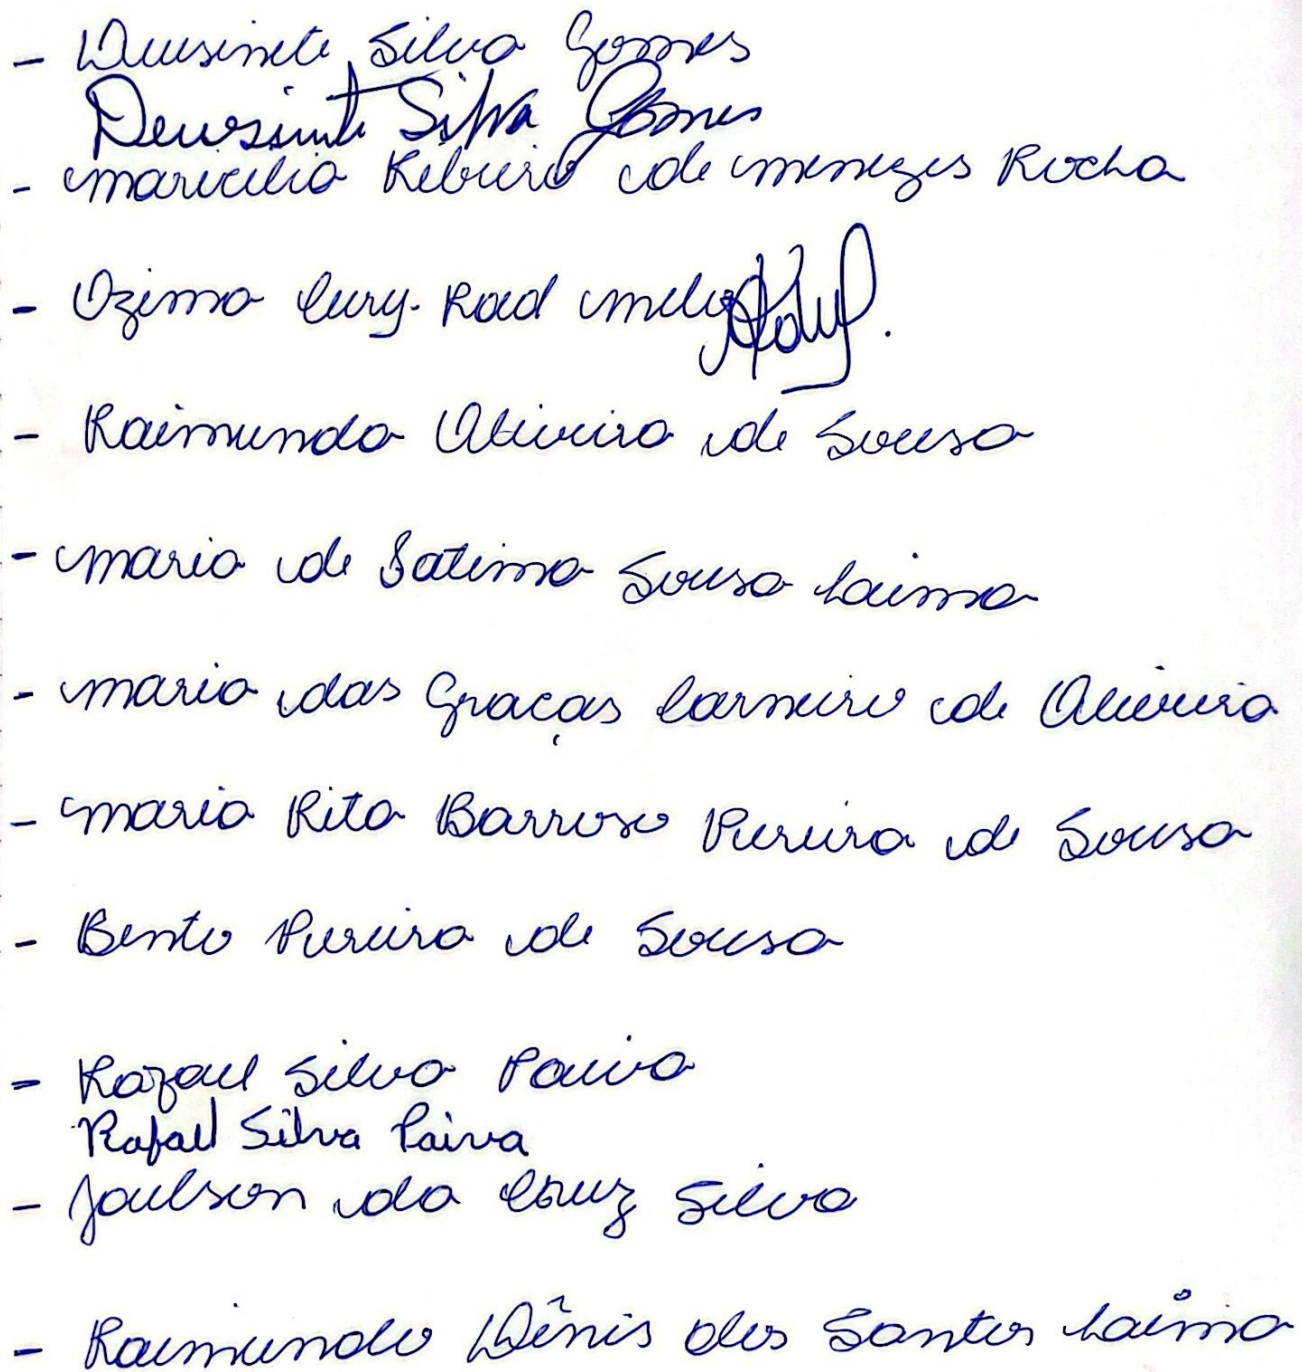 - Deusinete Silva Gomes
Deusinete Silva Gomes
- Maricelia Ribeiro de Menezes Rocha
- Ozimo Cury-Rad Melo
- Raimunda Oliveira de Sousa
- Maria de Fatima Sousa Laima
- Maria das Graças Carneiro de Oliveira
- Maria Rita Barroso Pereira de Sousa
- Bento Pereira de Sousa
- Rafael Silva Paiva
Rafael Silva Paiva
- Joelson da Cruz Silva
- Raimundo Dênis dos Santos Laima